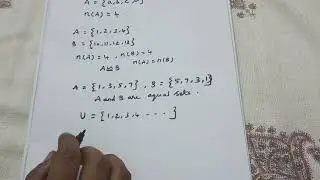 A = {a, b, c, d}
n(A) = 4
A = {1, 2, 3, 4}
B = {10, 11, 12, 13}
n(A) = 4 , n(B) = 4
n(A) = n(B)
A = {1, 3, 5, 7} , B = {5, 7, 3, 1}
A and B are equal sets .
U = {1, 2, 3, 4 - - - }